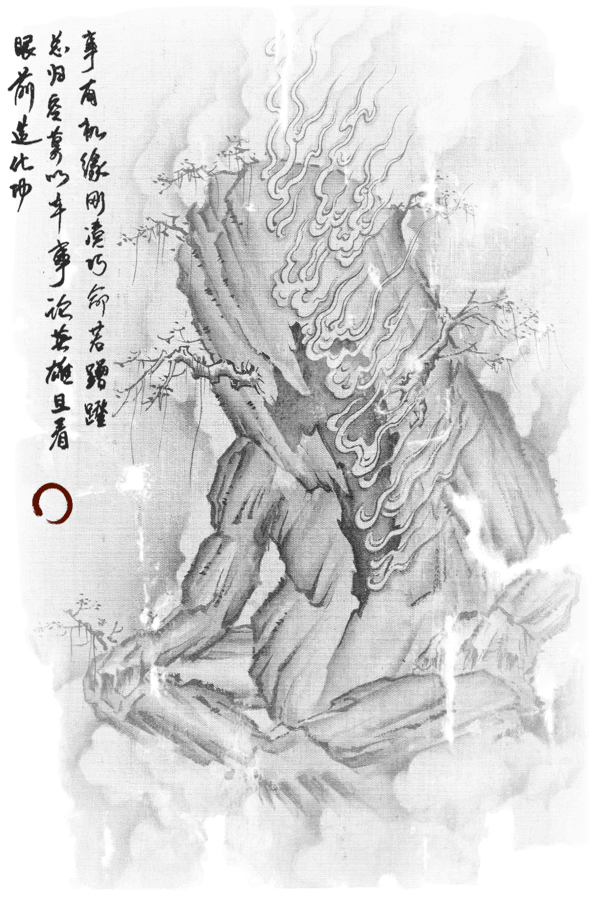 事有机缘刚凑巧命若蹭蹬
总归空莫以年事论英雄且看
眼前造化功